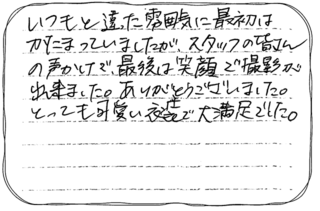 いつもと違った雰囲気に最初は
かたまっていましたが、スタッフの皆さん
の声かけで、最後は笑顔で撮影が
出来ました。ありがとうございました。
とっても可愛い衣装で大満足でした。